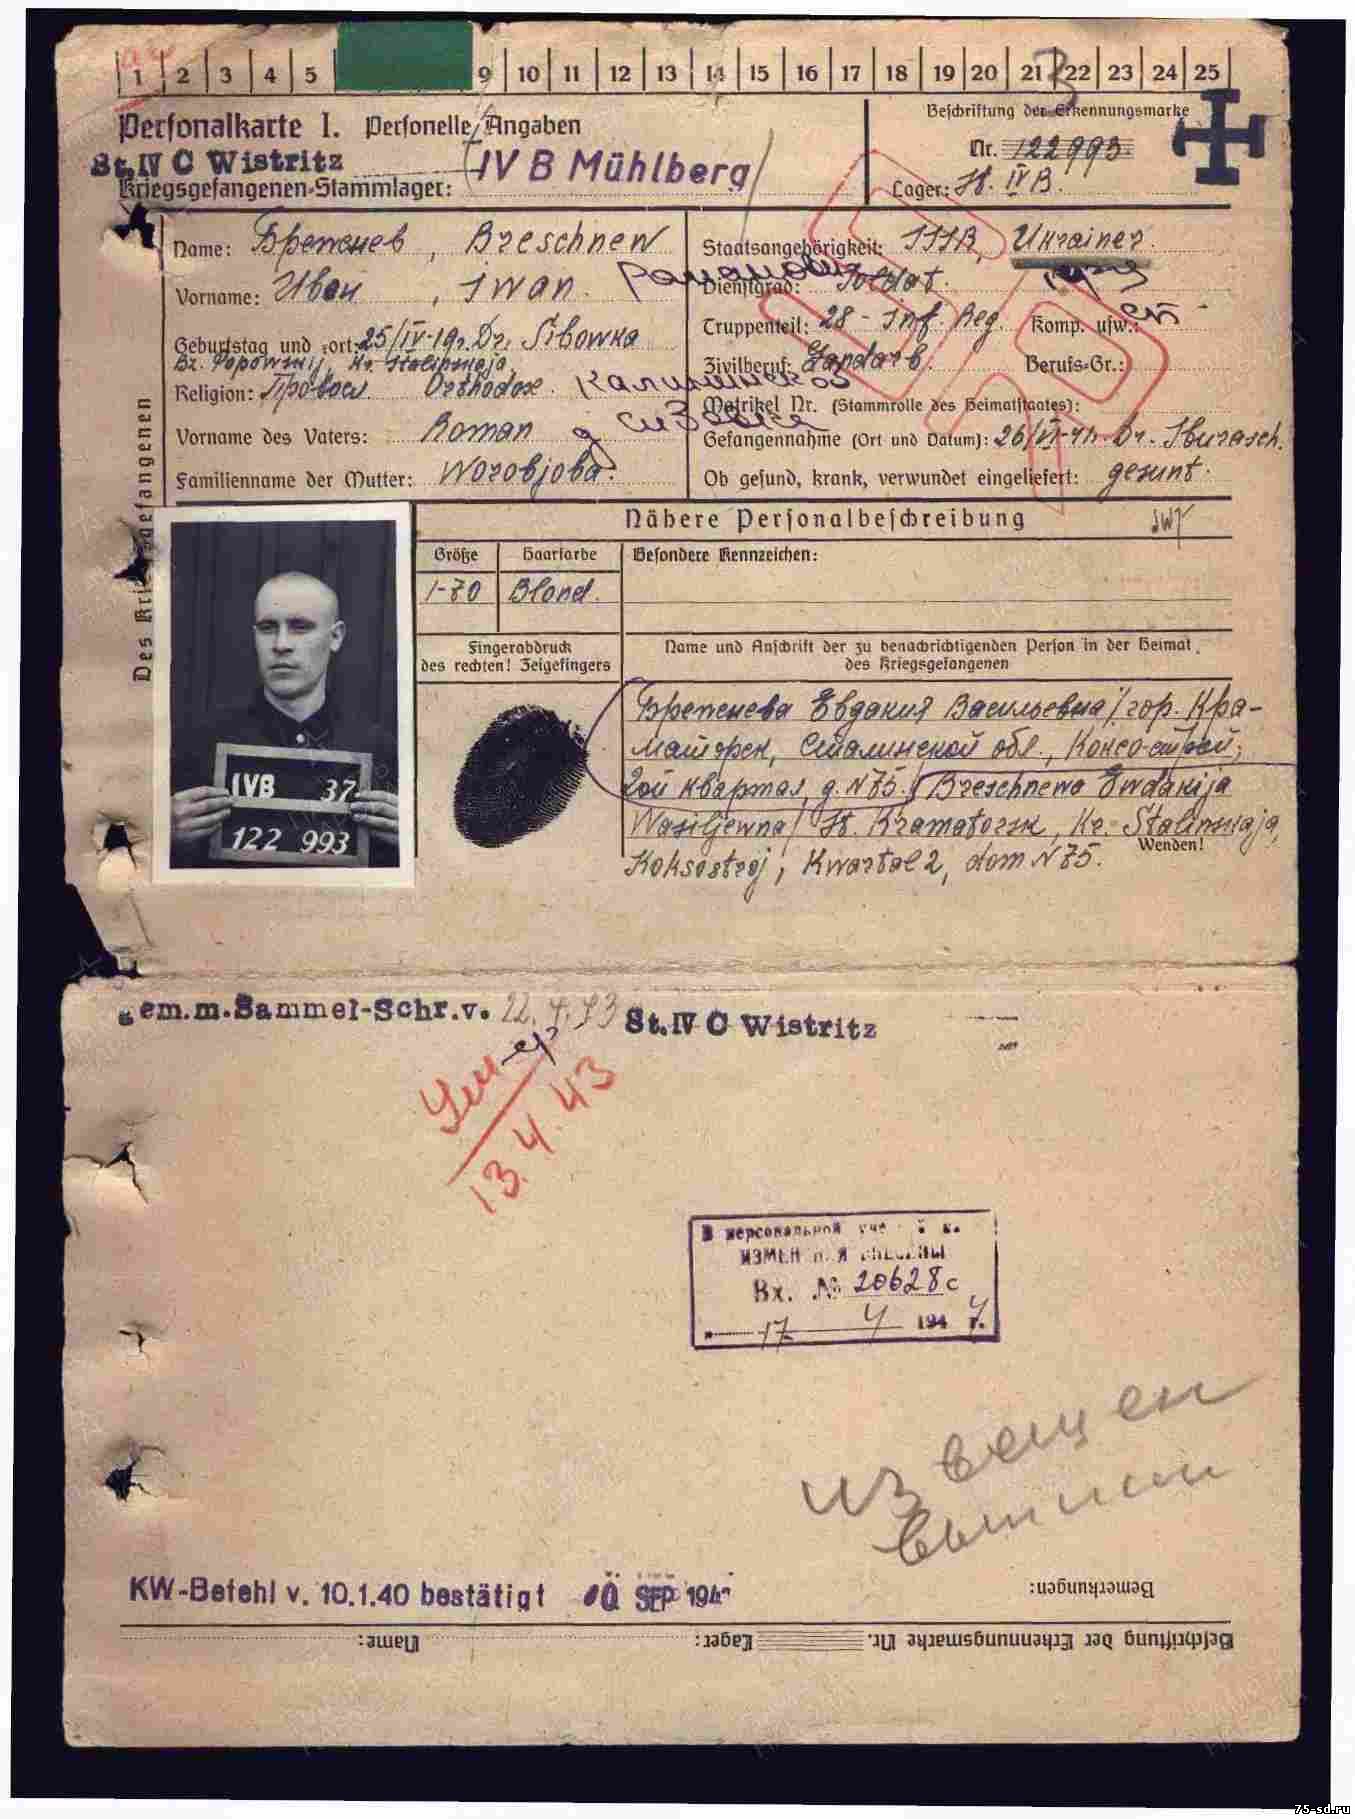 1 2 3 4 5 9 10 11 12 13 14 15 16 17 18 19 20 21 22 23 24 25
3
Personalkarte I. Personelle Angaben
St. IV C Wistritz
Kriegsgefangenen-Stammlager: IV B Mühlberg
Beschriftung der Erkennungsmarke
Nr. 122993
Lager: St. IVB.
Des Kriegsgefangenen
Name: Брежнев, Breschnew
Vorname: Иван, Iwan. Романович
Geburtstag und -ort: 25/IV-19. Dr. Sibowka
Bz. Popowskij, Kr. Stalinskaja,
Religion: Правосл. Orthodox.
Vorname des Vaters: Roman
Familienname der Mutter: Worobjowa.
Staatsangehörigkeit: SSSR, Ukrainer.
Dienstgrad: Soldat.
Truppenteil: 28-Inf. Reg. Komp. usw.:
Zivilberuf: Berufs-Gr.:
Matrikel Nr. (Stammrolle des Heimatstaates):
Gefangennahme (Ort und Datum): 26/VI-41.
Ob gesund, krank, verwundet eingeliefert: gesunt.
Nähere Personalbeschreibung
Größe Haarfarbe Besondere Kennzeichen:
1-70 Blond.
Fingerabdruck
des rechten! Zeigefingers
Name und Anschrift der zu benachrichtigenden Person in der Heimat
des Kriegsgefangenen
IVB 37
122 993
Брежнева Евдакия Васильевна/гор. Кра-
маторск, Сталинской обл., Коксо-строй,
2ой квартал, д. N75./ Breschnewa Ewdakija
Wasiljewna/ St. Kramatorsk, Kr. Stalinskaja,
Wenden!
Koksostroj, Kwartal 2, dom N75.
gem.m.Sammel-Schr.v. 22.4.43 St. IV C Wistritz
Умер
13.4.43
В персональной
ВНЕСЕНЫ
Вх. № 20628с
17 4 1947 г.
извещен
KW-Befehl v. 10.1.40 bestätigt SEP 194
Bemerkungen:
Beschriftung der Erkennungsmarke Nr. Lager: Name:
75-sd.ru